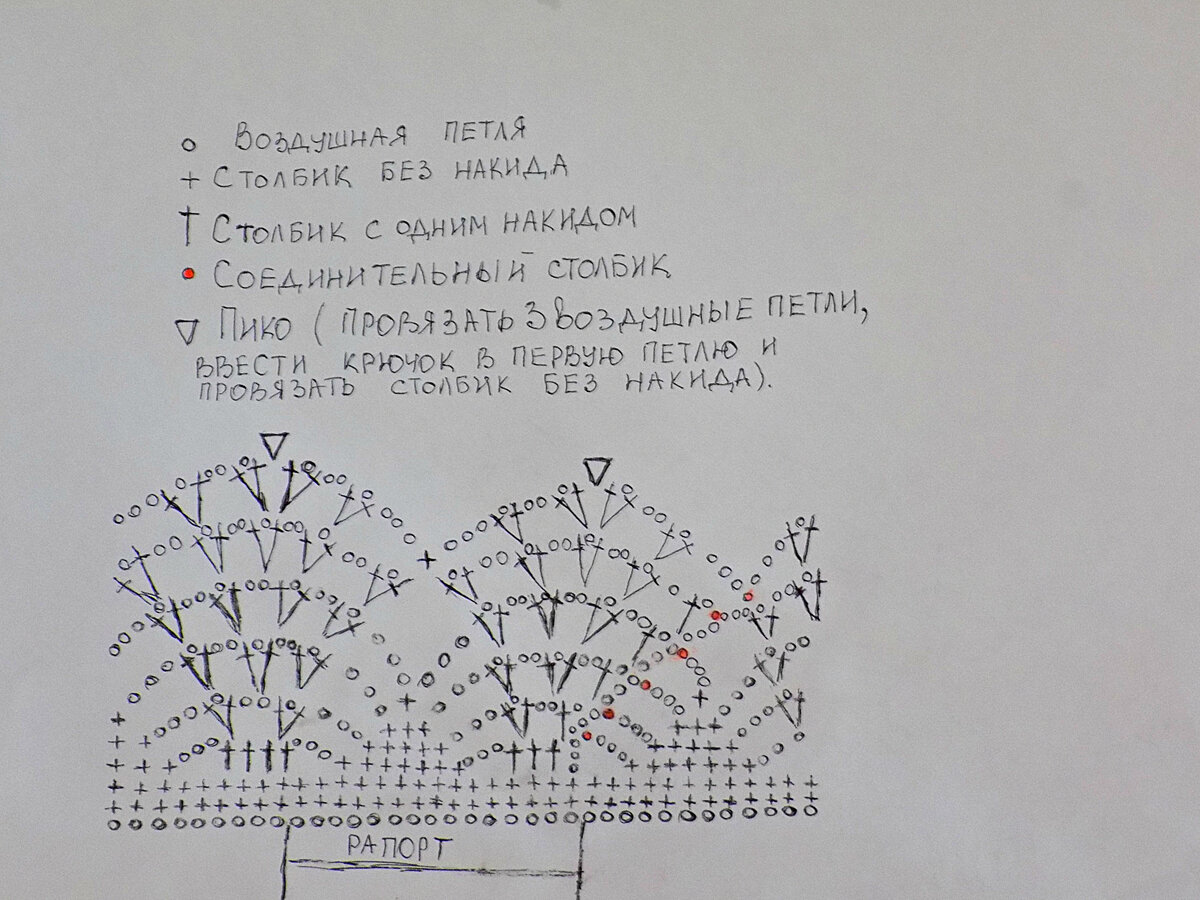 Воздушная петля
+ Столбик без накида
† Столбик с одним накидом
Соединительный столбик
Пико (провязать 3 воздушные петли,
ввести крючок в первую петлю и
провязать столбик без накида).
РАПОРТ